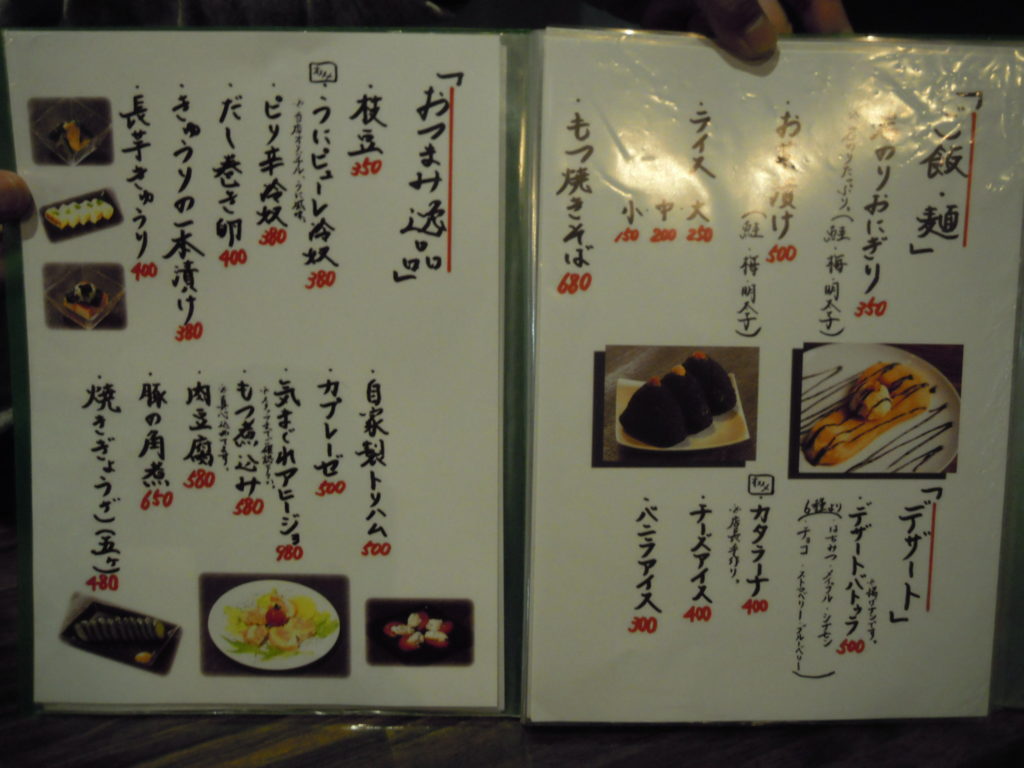 「ご飯・麺」
のりおにぎり 350
(鮭・梅・明太子)
お茶漬け 500
(鮭・梅・明太子)
・ライス 大 250
中 200
小 150
・もつ焼きそば 680
「デザート」
・デザートバトゥラ 500
※揚げナンです。
6種より
(はちみつ・メイプル・シナモン
チョコ・ストロベリー・ブルーベリー)
オススメ
・カタラーナ 400
※店長手作り。
・チーズアイス 400
・バニラアイス 300
「おつまみ逸品」
・枝豆 350
オススメ
・うにピューレ冷奴 380
・ピリ辛冷奴 380
・だし巻き卵 400
・きゅうりの一本漬け 380
・長芋きゅうり 400
・自家製トリハム 500
・カプレーゼ 500
・気まぐれアヒージョ 980
・もつ煮込み 580
・肉豆腐 580
・豚の角煮 650
・焼きぎょうザ(五ケ) 480